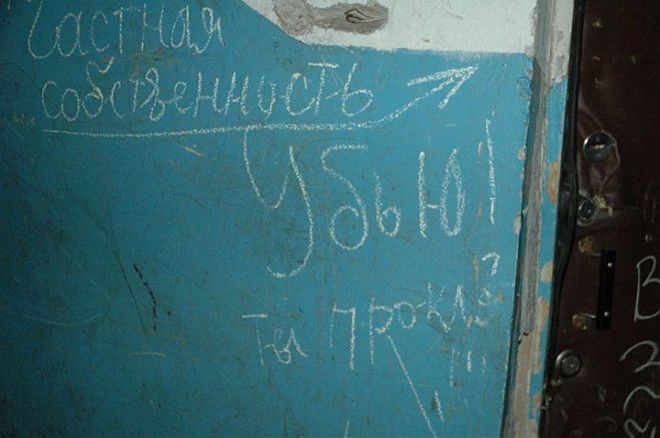 Частная
собственность
Убью!
Ты
В
З